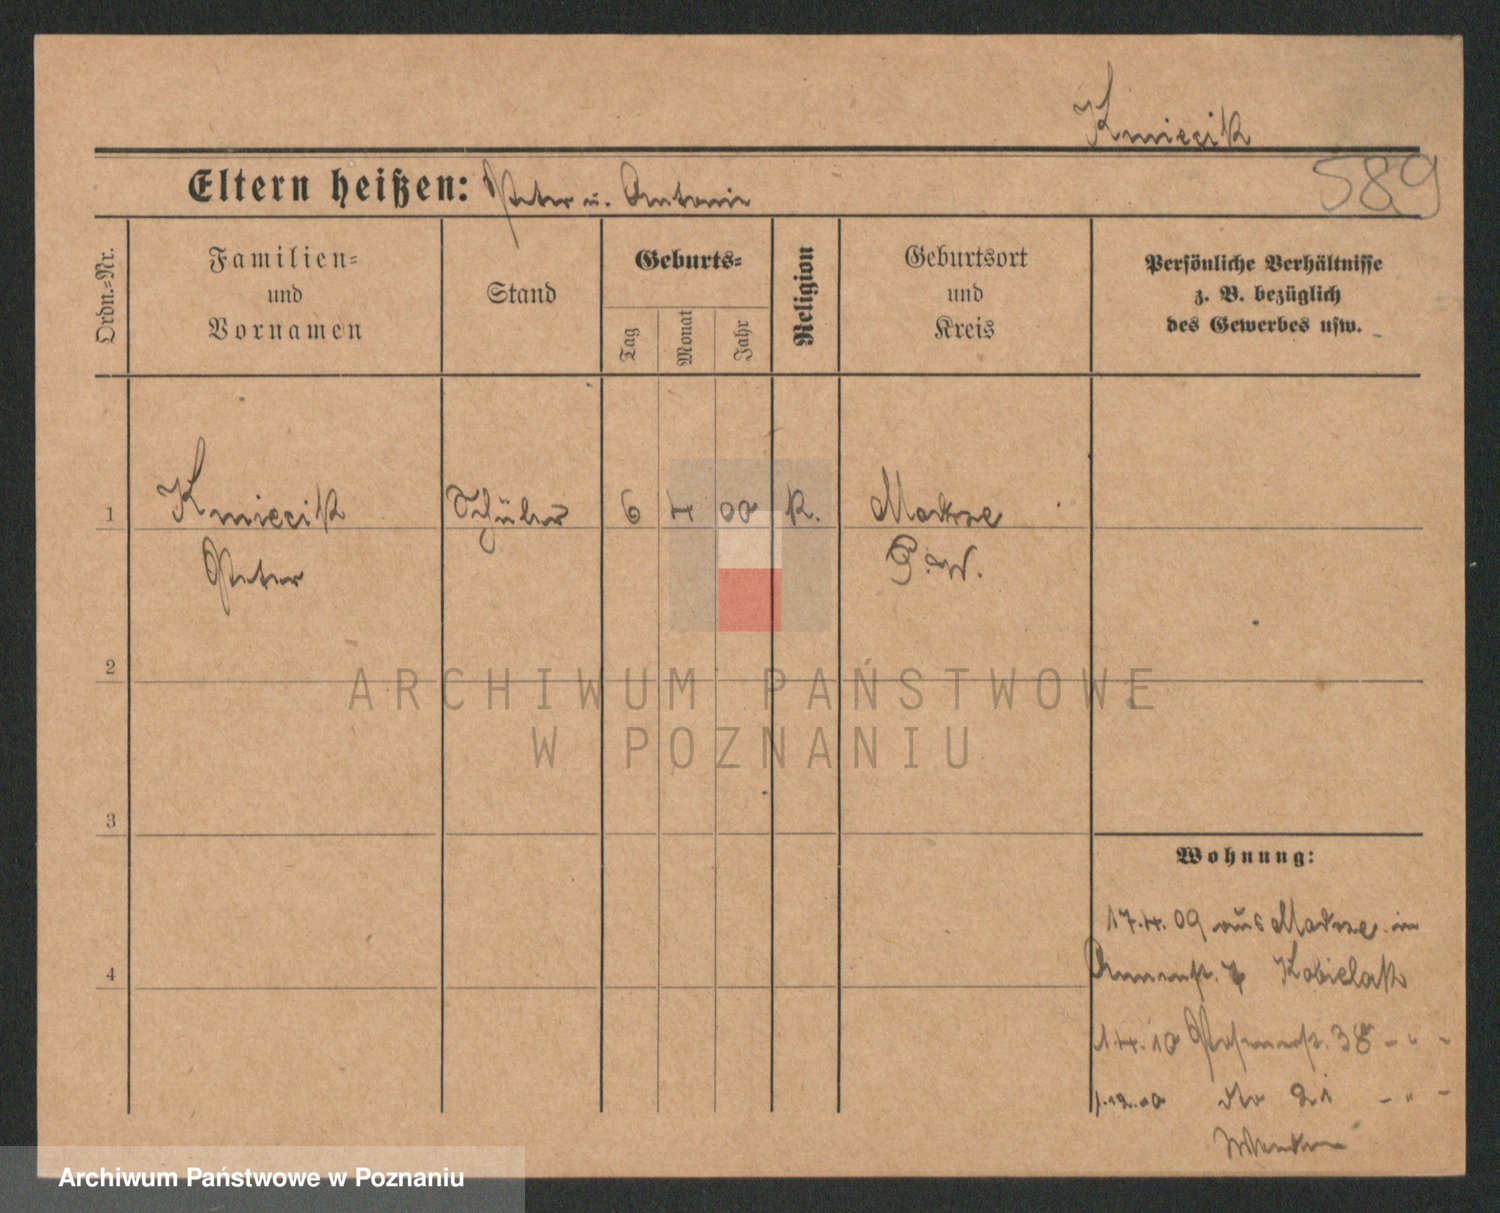 Kmiecik
589
Eltern heißen: Peter u. Antonie
Ordn.-Nr.
Familien-
und
Vornamen
Stand
Geburts-
Tag
Monat
Jahr
Religion
Geburtsort
und
Kreis
Persönliche Verhältnisse
z. B. bezüglich
des Gewerbes usw.
1
Kmiecik
Peter
Schüler
6 4 00
k.
Modrze
P.W.
2
ARCHIWUM PAŃSTWOWE
W POZNANIU
3
Wohnung:
17.4.09 aus Modrze in
4
7 Kobielak
1.4.10 38 - " -
1.12.10 dto 21 - " -
Archiwum Państwowe w Poznaniu